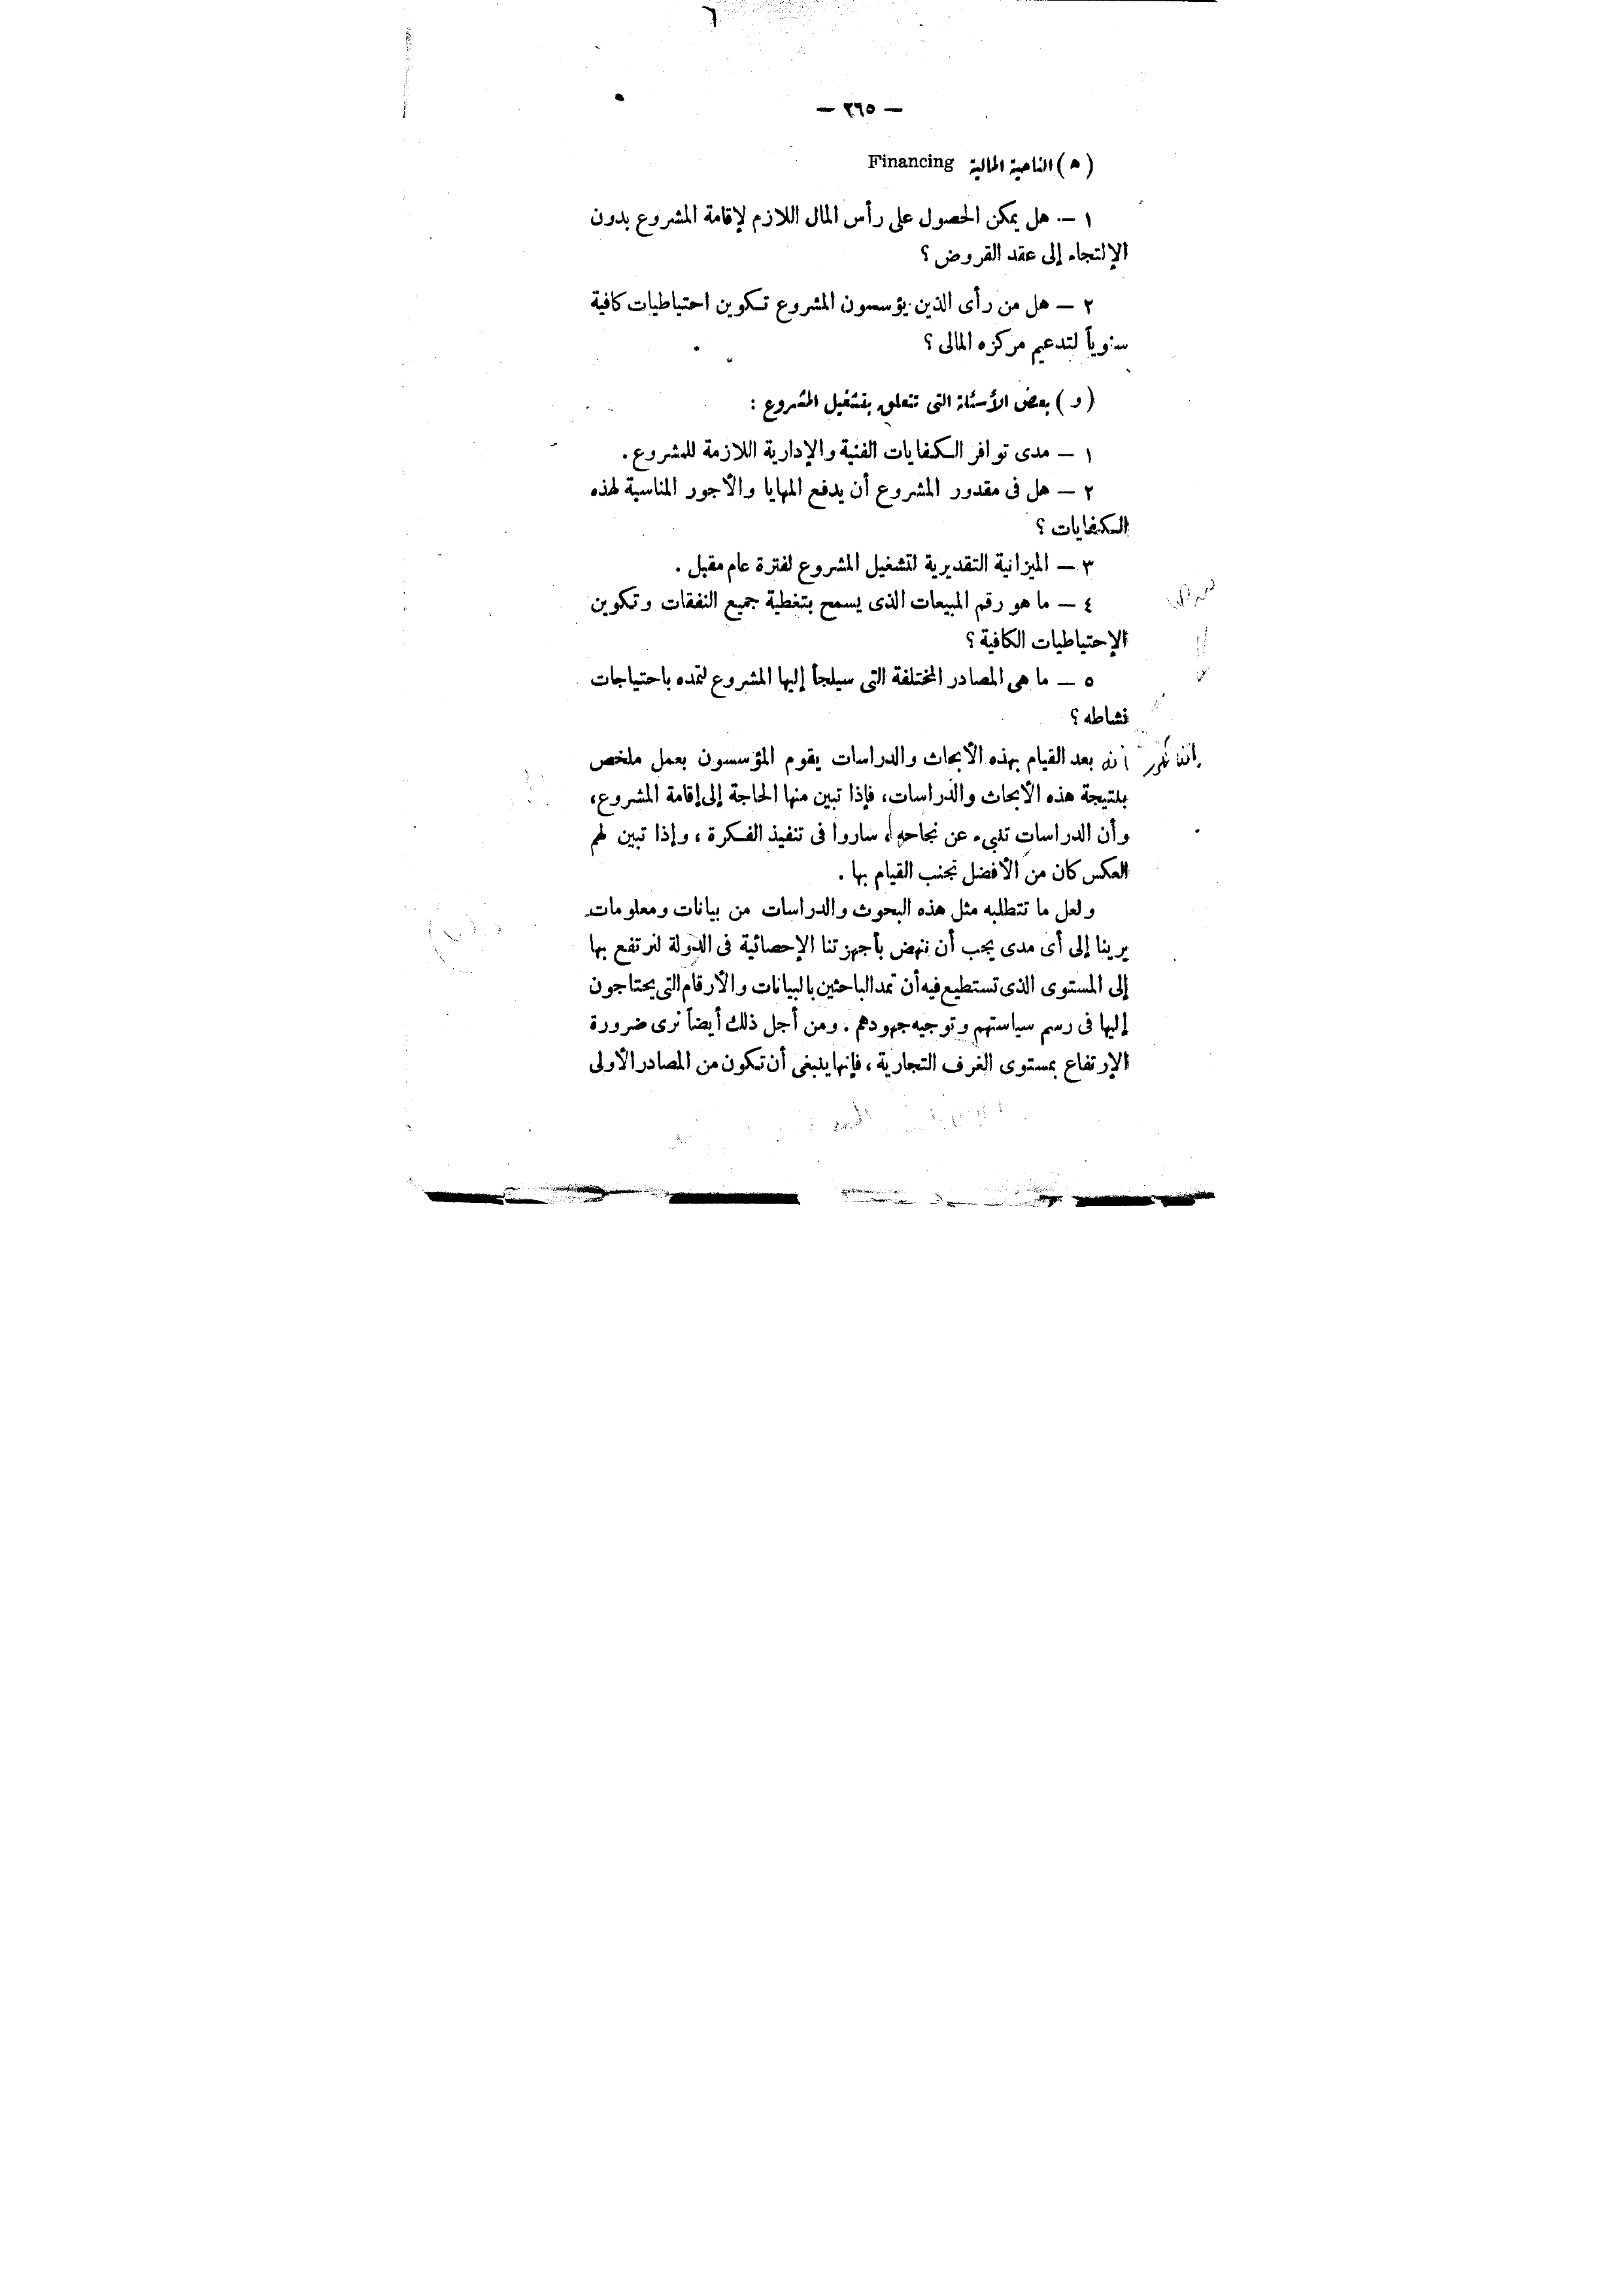 — ٢٦٥ —
( ه ) الناحية المالية Financing
١ — هل يمكن الحصول على رأس المال اللازم لإقامة المشروع بدون
الإلتجاء إلى عقد القروض ؟
٢ — هل من رأى الذين يؤسسون المشروع تكوين احتياطيات كافية
سنوياً لتدعيم مركزه المالى ؟
( و ) بعض الأسئلة التى تتعلق بتشغيل المشروع :
١ — مدى توافر الكفايات الفنية والإدارية اللازمة للمشروع .
٢ — هل فى مقدور المشروع أن يدفع المهايا والأجور المناسبة لهذه
الكفايات ؟
٣ — الميزانية التقديرية لتشغيل المشروع لفترة عام مقبل .
٤ — ما هو رقم المبيعات الذى يسمح بتغطية جميع النفقات وتكوين
الإحتياطيات الكافية ؟
٥ — ما هى المصادر المختلفة التى سيلجأ إليها المشروع لتمده باحتياجات
نشاطه ؟
أنه بعد القيام بهذه الأبحاث والدراسات يقوم المؤسسون بعمل ملخص
بنتيجة هذه الأبحاث والدراسات، فإذا تبين منها الحاجة إلى إقامة المشروع،
وأن الدراسات تنبىء عن نجاحه، ساروا فى تنفيذ الفكرة ، وإذا تبين لهم
العكس كان من الأفضل تجنب القيام بها .
ولعل ما تتطلبه مثل هذه البحوث والدراسات من بيانات ومعلومات
يرينا إلى أى مدى يجب أن ننهض بأجهزتنا الإحصائية فى الدولة لنرتفع بها
إلى المستوى الذى تستطيع فيه أن تمد الباحثين بالبيانات والأرقام التى يحتاجون
إليها فى رسم سياستهم وتوجيه جهودهم . ومن أجل ذلك أيضاً نرى ضرورة
الإرتفاع بمستوى الغرف التجارية ، فإنها ينبغى أن تكون من المصادر الأولى